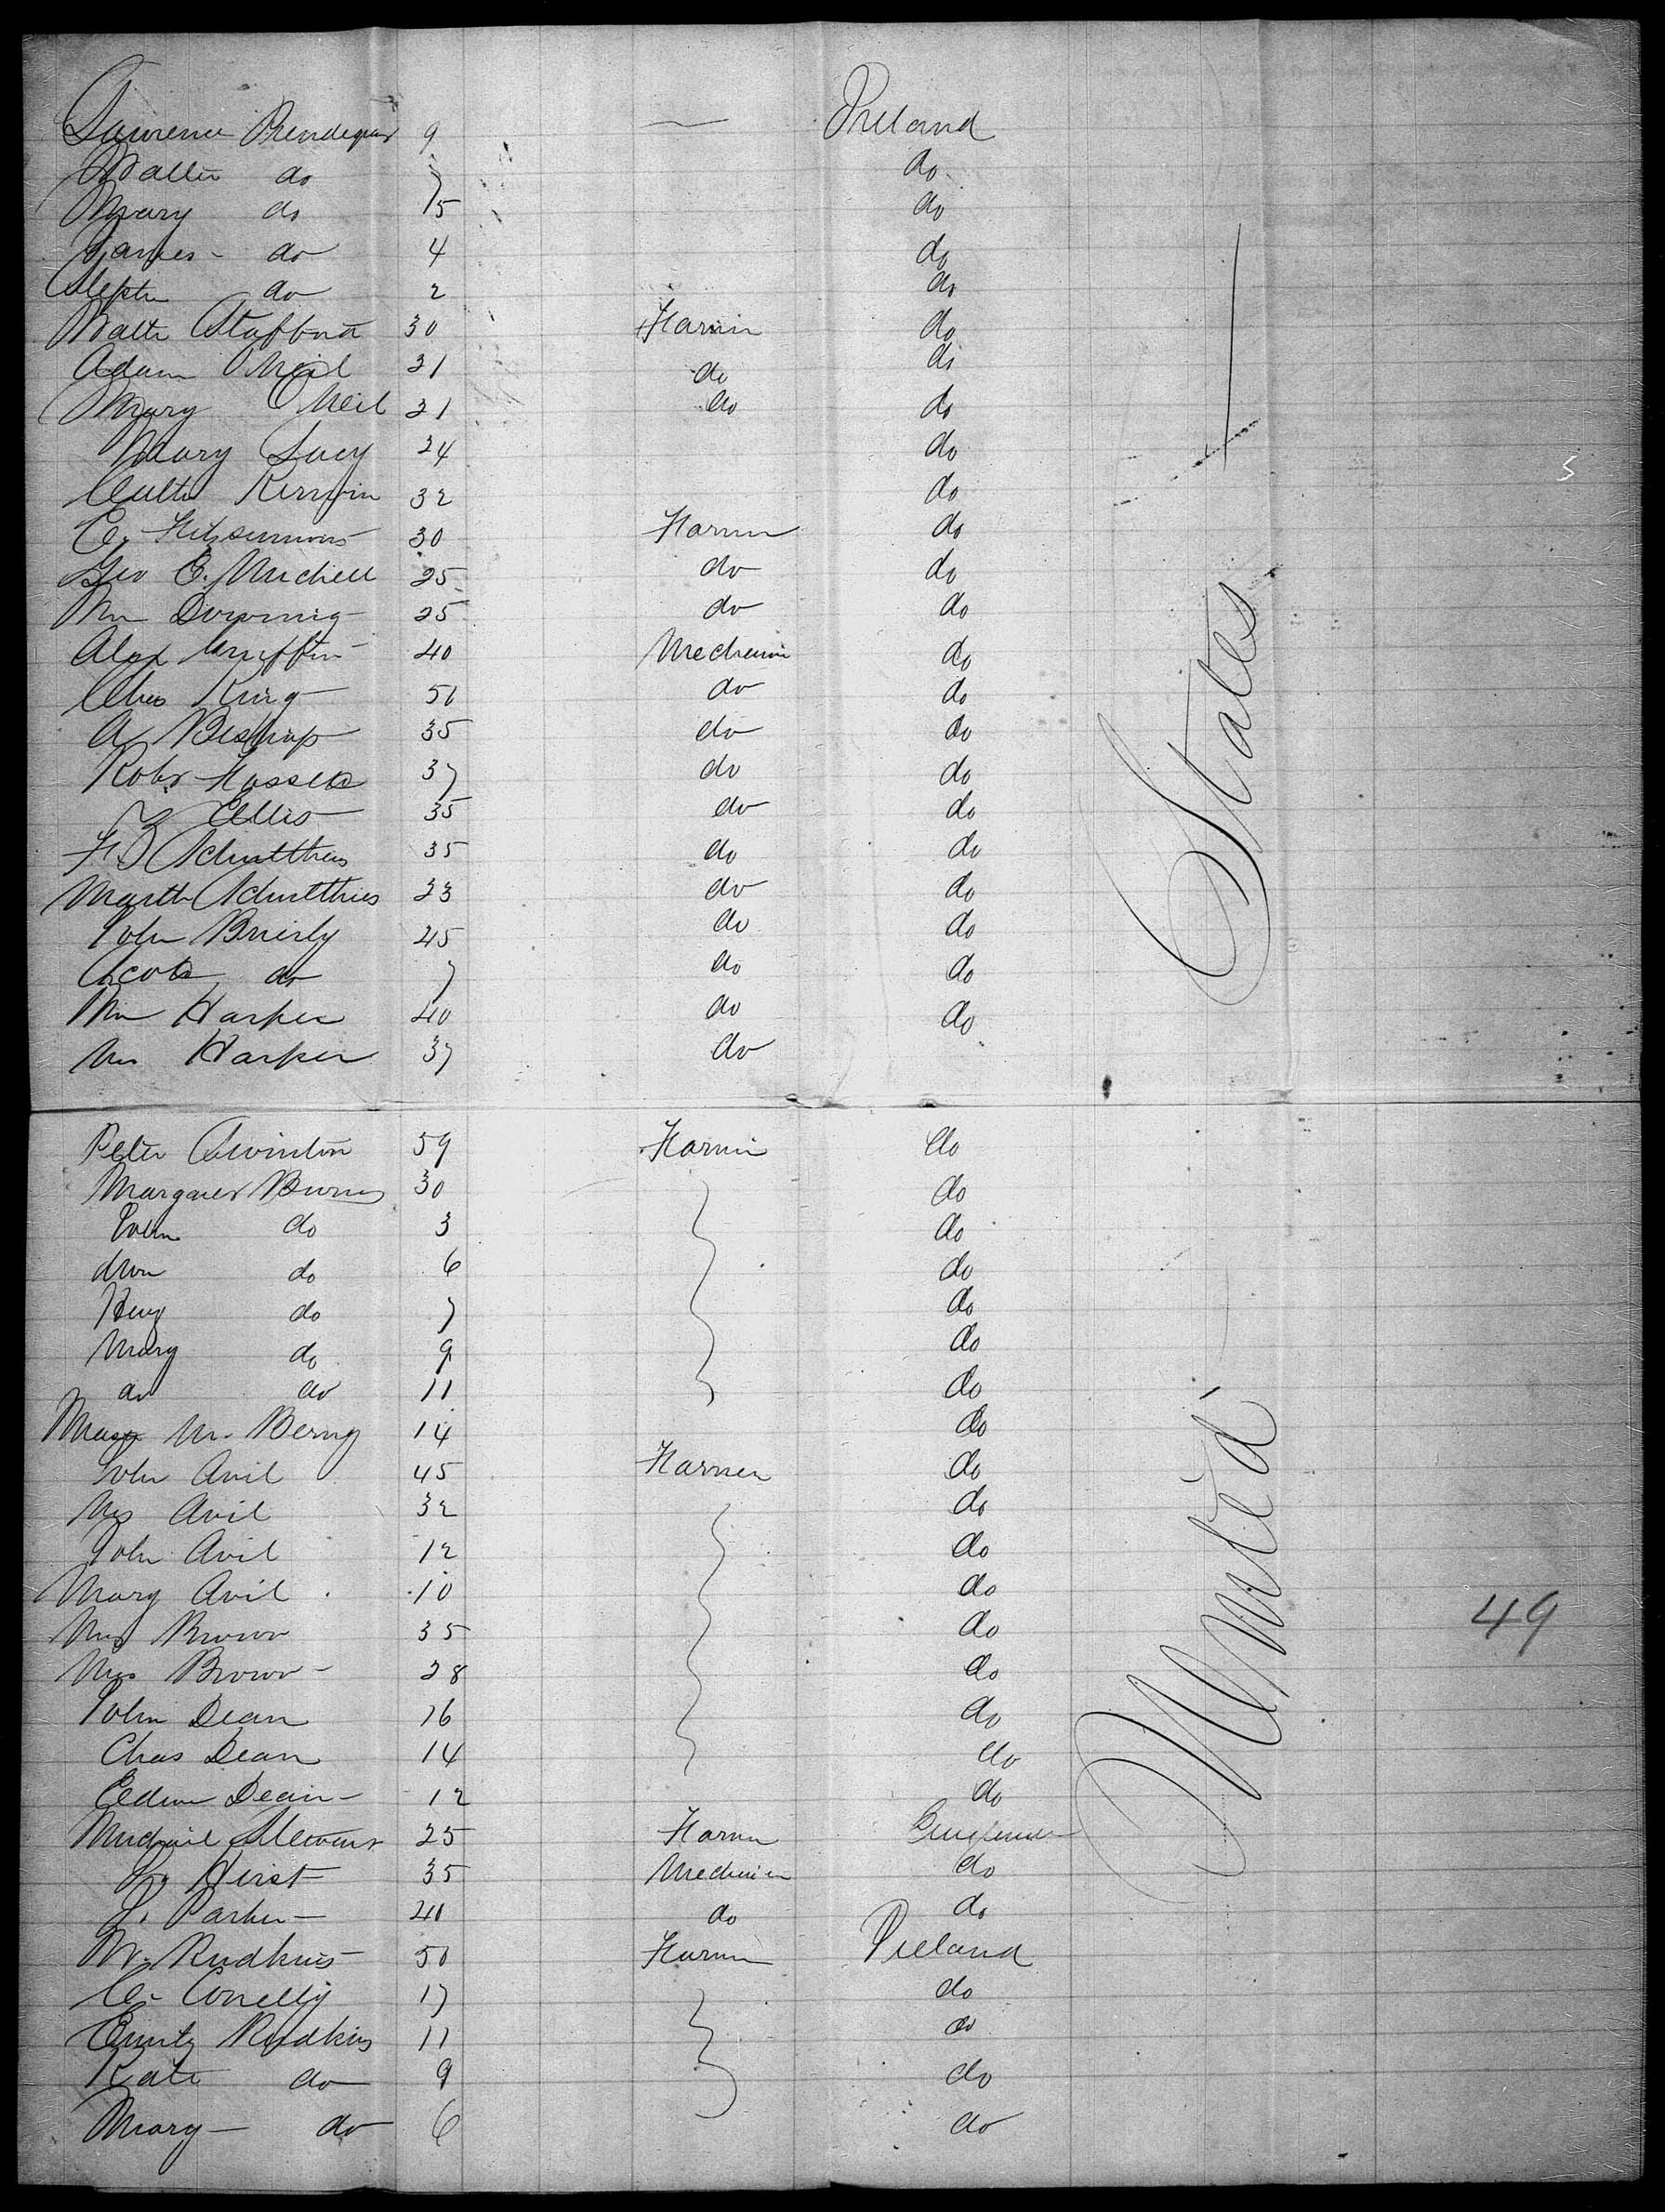 Lawrence Prendegras 9 — Ireland
Walter do 7 do
Mary do 5 do
James - do 4 do
Steph do 2 do
Walter Stafford 30 Farmer do
Adam Neil 31 do do
Mary Neil 21 do do
Mary Lucy 24 do
Kerwin 32 do
C. Fitzsimmons 30 Farmer do
Geo C. Michell 25 do do
Wm Downing 25 do do
Alex Griffin 40 Mechanic do
Chas King 50 do do
A Bishop 35 do do
Robt 37 do do
Ellis 35 do do
F. Schultthies 35 do do
Marth Schultthies 23 do do
John Brierly 45 do do
do 7 do do
Mr Harper 40 do do
Mrs Harper 37 do
Peter Swinton 59 Farmer do
Margaret Burns 30 do
do 3 do
do 6 do
Henry do 7 do
Mary do 9 do
do do 11 do
Mary M. Berry 14 do
John Avil 45 Farmer do
Mrs Avil 32 do
John Avil 12 do
Mary Avil 10 do
Mr Brown 35 do
Mrs Brown - 28 do
John Dean 16 do
Chas Dean 14 do
Edwin Dean - 12 do
Michail 25 Farmer England
L. Hirst 35 Mechanic do
J. Parker - 40 do do
M. Rudkins 50 Farmer Ireland
C. Conelly 17 do
Emity Rudkins 11 do
Kate do 9 do
Mary - do 6 do
United States
49
5